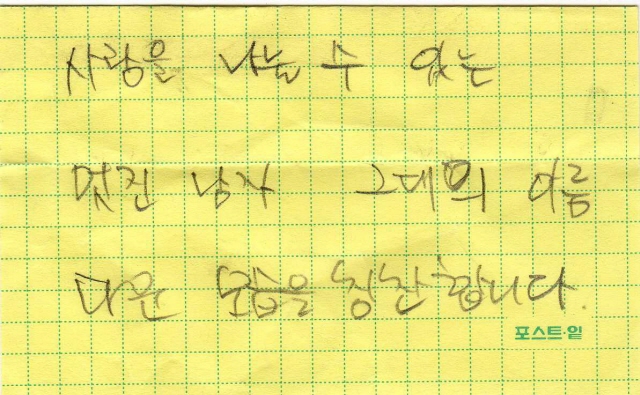 사랑을 나눌 수 있는
멋진 남자 그대의 아름
다운 모습을 칭찬합니다.
포스트·일